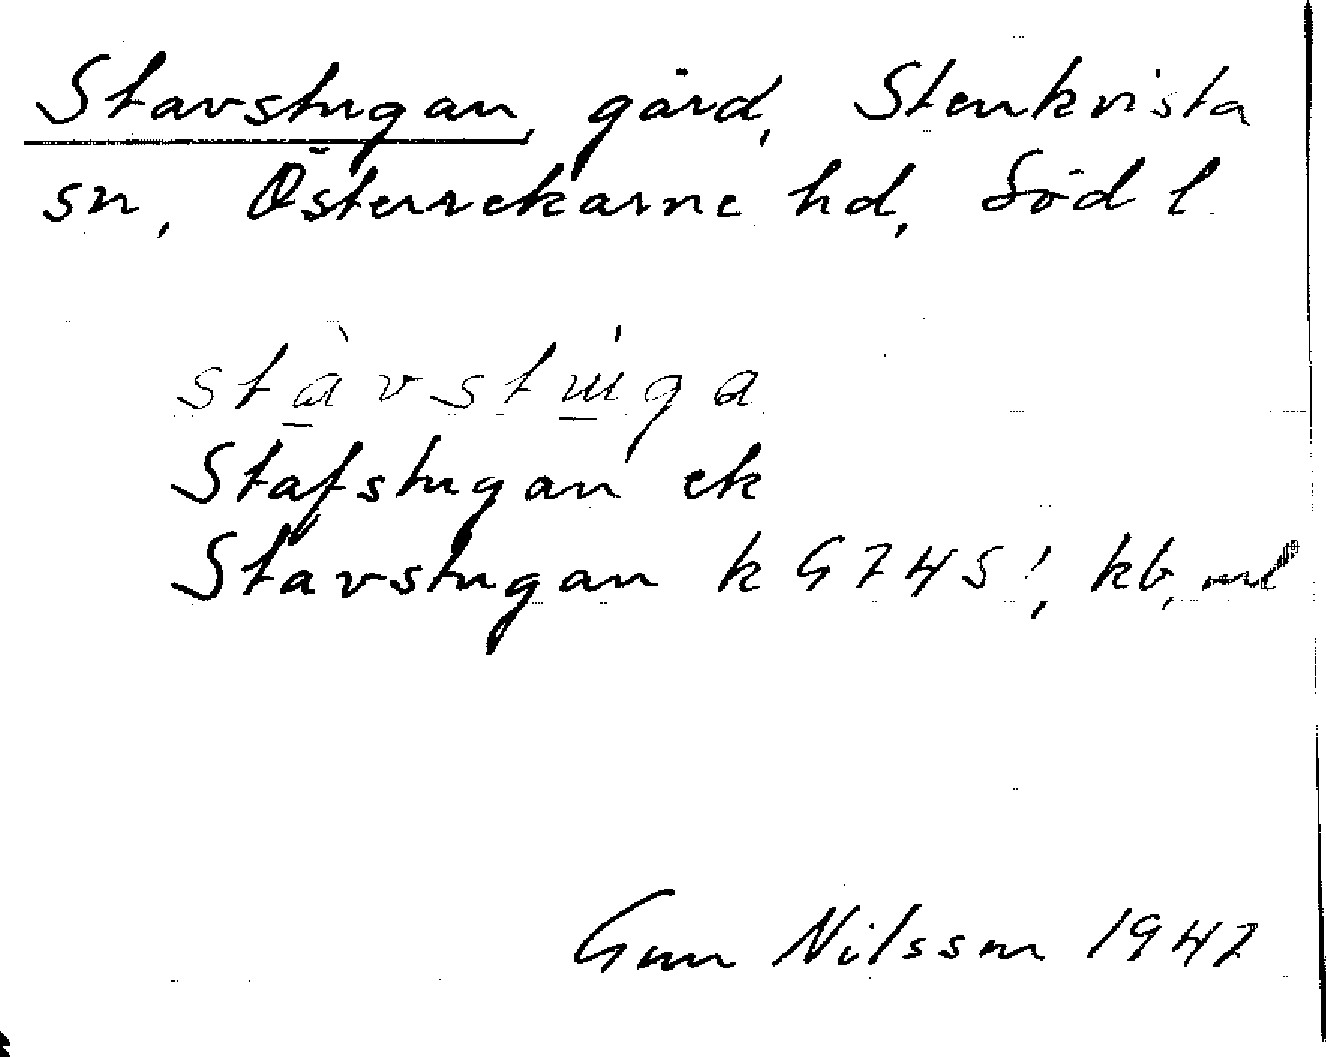 Stavstugan, gård, Stenkvista
sn, Österrekarne hd, Söd l
stàvstúga
Stafstugan ek
Stavstugan k G745!, kb, ml
Gun Nilsson 1947